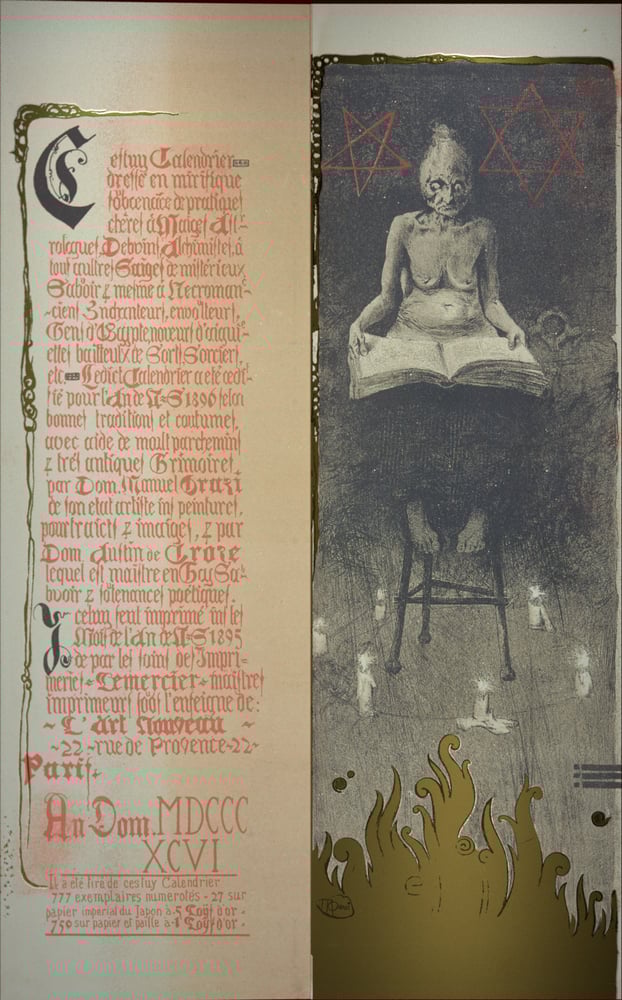 Cestuy Calendrier
dressé en mirifique
sobcenāce de pratiques
chères à Maiges Ast-
rologues, Debvins, Alchimistes, à
tous aultres Saiges de mistérieux
Sabvoir & mesme à Necroman-
-ciens Enchanteurs, envoulteurs,
Gens d'Egypte, noueurs d'aigui-
ettes bailleulx de Sorts, Sorciers,
etc Ledict Calendrier a esté
pour l'An de N-S 1896 selon
bonnes traditions et coutumes,
avec aide de moult parchemins
& très antiques Grimoires,
par Dom. Manuel Orazi
de son etat artiste ins peintures,
pourtraicts & imaiges, & par
Dom Austin de Croze
lequel est maistre en Gay Sa-
bvoir & sotenances poétiques.
Icelluy feut imprimé ins les
Mois de l'An de N-S 1895
de par les soins des Impri-
meries Lemercier maistres
imprimeurs soos l'enseigne de:
~ L'Art Nouveau ~
~22 ~rue de Provence-22~
Paris.
An Dom. MDCCC
XCVI
Il a été tiré de cestuy Calendrier
777 exemplaires numerotés - 27 sur
papier impérial du Japon à 5 Loÿs d'or -
750 sur papier et paille à 1 Loÿs d'or -